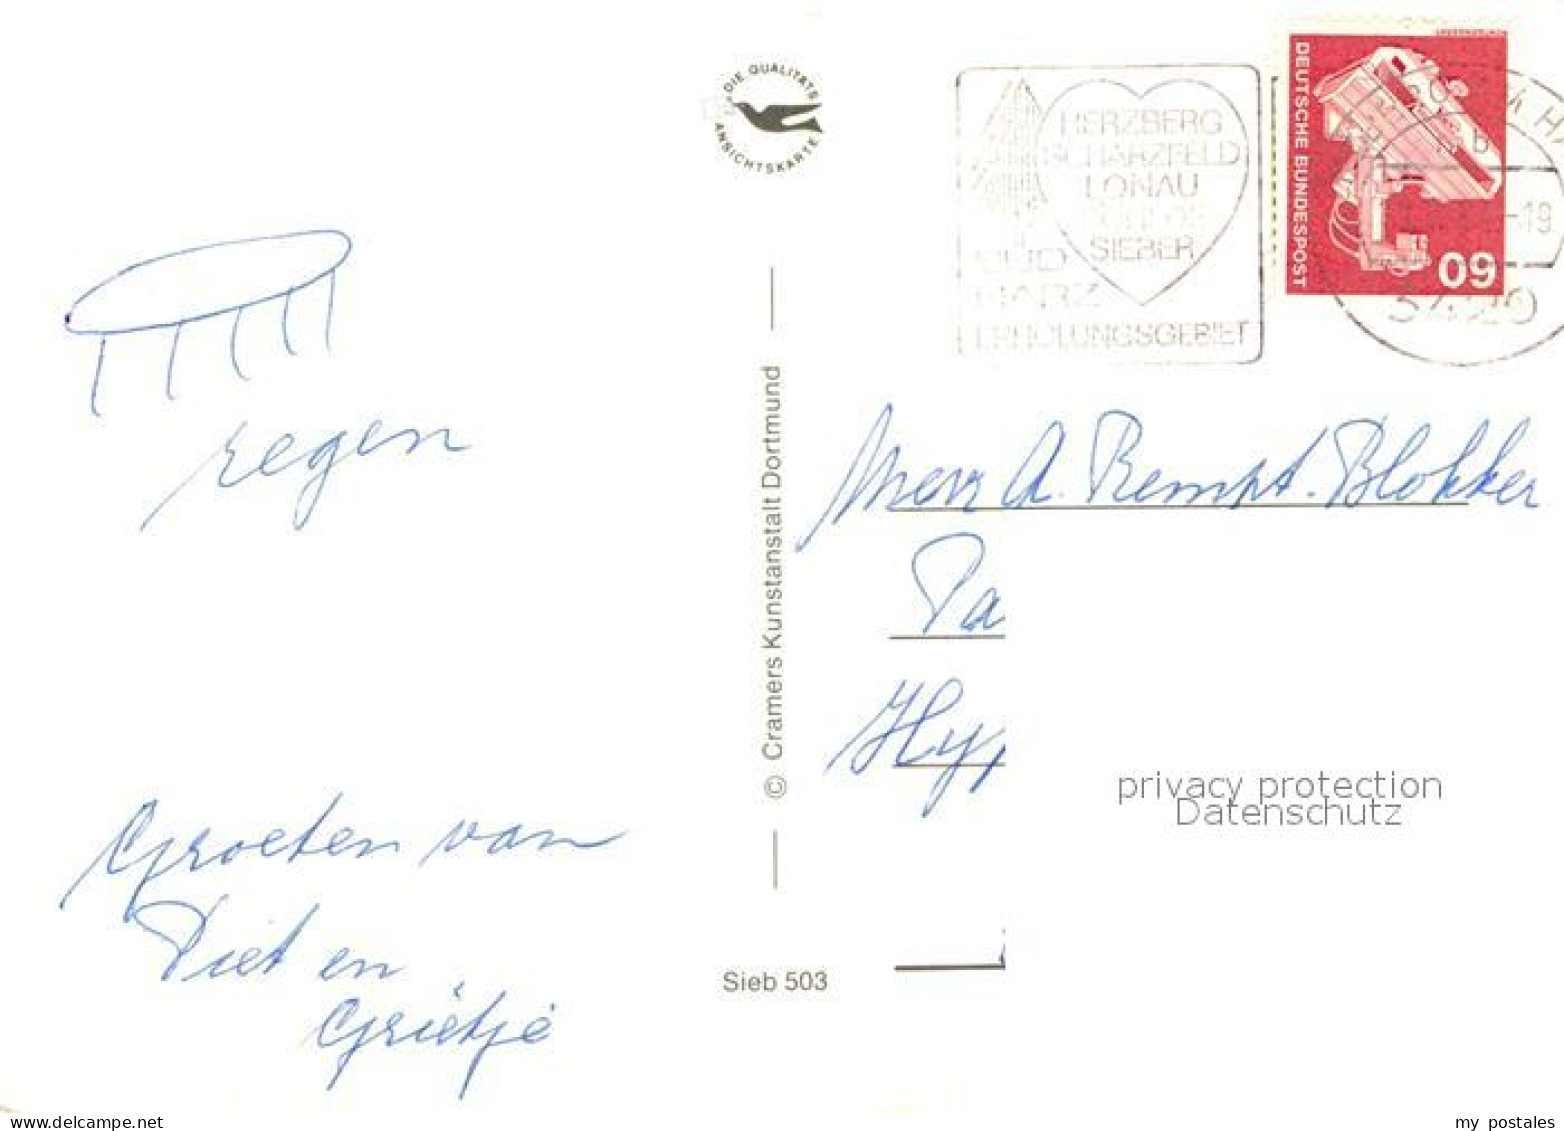 DIE QUALITÄTS
ANSICHTSKARTE
HERZBERG
SCHARZFELD
LONAU
SIEBER
SÜD
HARZ
ERHOLUNGSGEBIET
DEUTSCHE BUNDESPOST
60
-19
regen
Groeten van
Piet en
Grietje
© Cramers Kunstanstalt Dortmund
Sieb 503
A. Rempt-Blokker
Pa
Hyp
privacy protection
Datenschutz
www.delcampe.net
my_postales